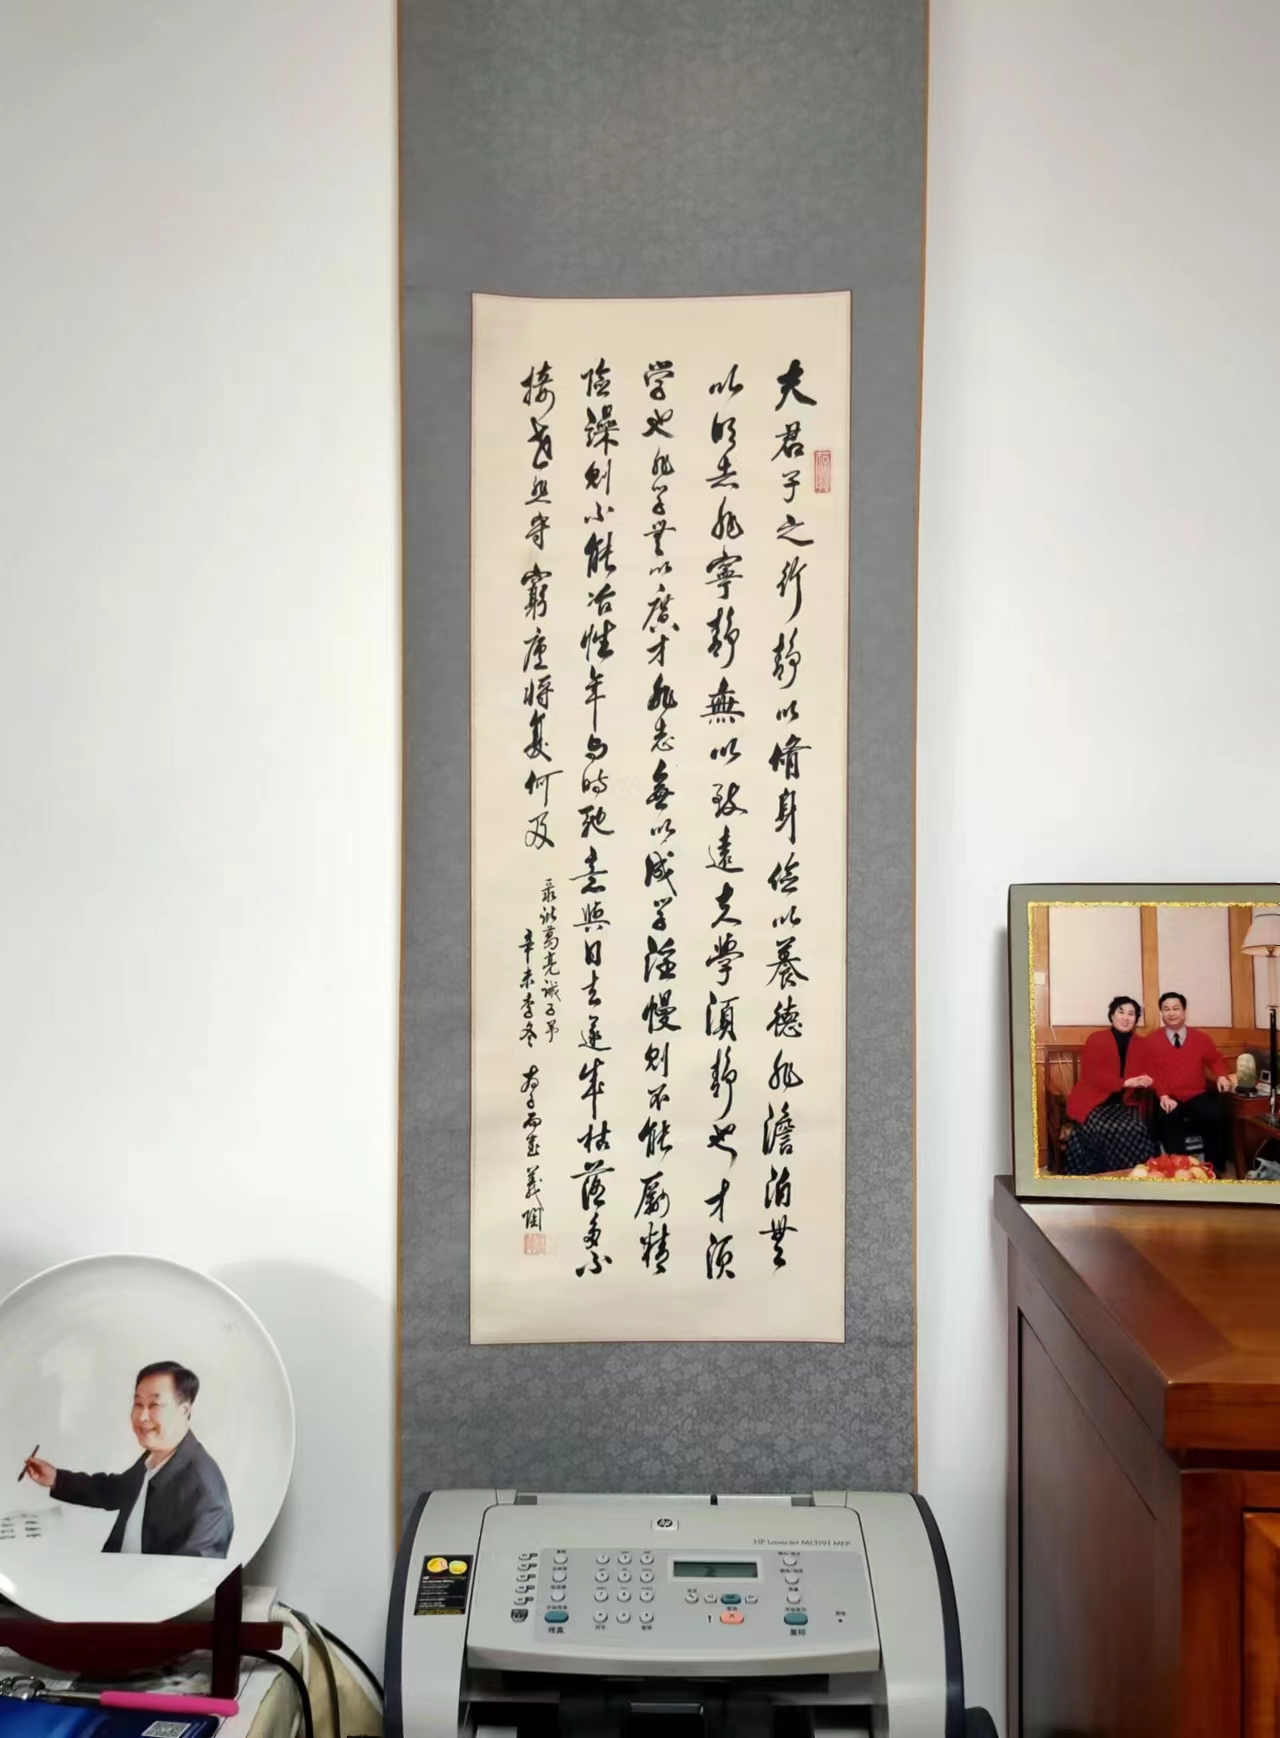 夫君子之行静以脩身俭以養德非澹泊無
以明志非寧静無以致遠夫學須静也才須
学也非学無以廣才非志無以成学淫慢则不能励精
险躁则不能冶性年与时驰意與日去遂成枯落多不
接世悲守窮廬将复何及
录诸葛亮诫子书
辛未季冬
義闻
hp
HP LaserJet M1319f MFP
传真
复印